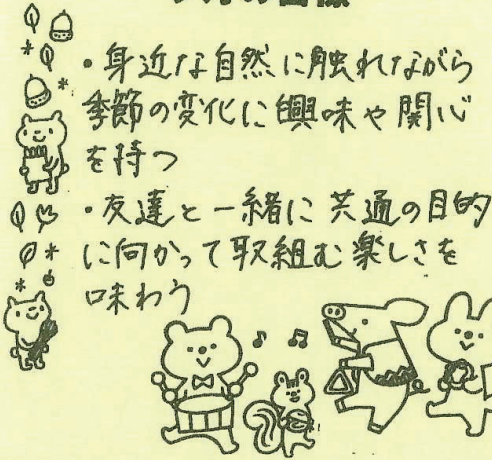 ・身近な自然に触れながら
季節の変化に興味や関心
を持つ
・友達と一緒に共通の目的
に向かって取組む楽しさを
味わう